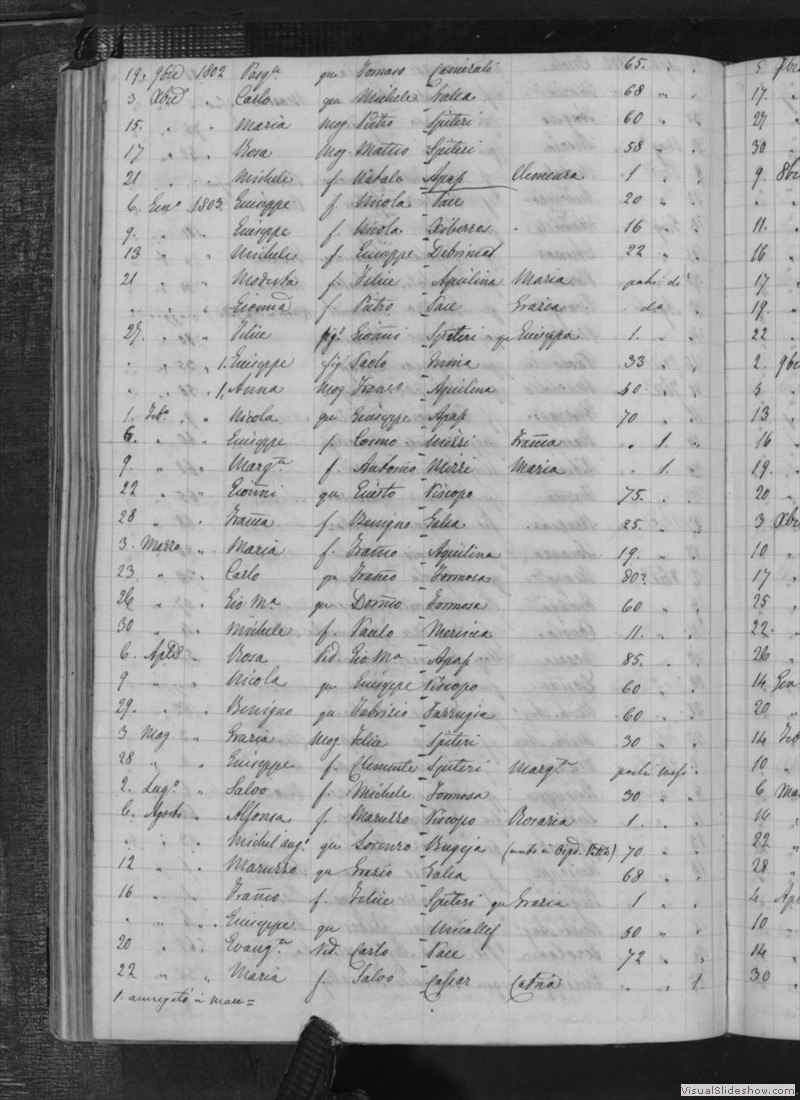 19. 9bre 1802 Pasq.le qu Tomaso Camirali 65. " "
3. Xbre " Carlo qu Michele Galea 68 " "
15. " " Maria Mog. Pietro Spiteri 60 " "
17 " " Rosa Mog. Matteo Spiteri 58 " "
21 " " Michele f. Natale Apap Clemenza 1 " "
6. Gen.o 1803. Giuseppe f. Nicola Pace 20 " "
9. " " Giuseppe f. Nicola Xiberras 16 " "
13 " " Michele f. Giuseppe 22 " "
21 " " Modesta f. Felice Aquilina Maria
" " " Gionna f. Pietro Pace Grazia do
27. " " Felice fig. Gionni Spiteri qu Giuseppa 1. " "
" " 1. Giuseppe fig Paolo 33 " "
" " 1, Anna Mog Franco Aquilina 40 " "
1. Feb. " " Nicola qu Giuseppe Apap 70 " "
6. " " Giuseppe f. Cosmo Mizzi Franca " 1. "
9. " " Marg.ta f. Antonio Mizzi Maria " 1. "
22 " " Gionni qu Giusto Piscopo 75. " "
28 " " Franca f. Benigno Galea 25. " "
3. Marzo " Maria f. Franco Aquilina 19. " "
23 " " Carlo qu Franco Formosa 80 " "
26 " " Gio Ma qu Domco Formosa 60 " "
30 " " Michele f. Paulo 11. " "
6. Aple " Rosa Vid. Gio Ma Apap 85. " "
9 " " Nicola qu Giuseppe Piscopo 60 " "
29. " " Benigno qu Fabrizio Farrugia 60 " "
3 Mag. " Grazia Mog Felice Spiteri 30 " "
28 " " Giuseppe f. Clemente Spiteri Marg.ta
2. Lug.o " Salvo f. Michele Formosa 30 " "
6. Agosto " Alfonsa f. Maruzzo Piscopo Rosaria 1. " "
" " Michel'ang.o qu Lorenzo Bugeja 70 " "
12 " " Maruzzo qu Grazio Galea 68 " "
16 " " Franco f. Felice Spiteri qu Grazia 1 " "
" " " Giuseppe qu Micallef 50 " "
20 " " Evang.ta Vid. Carlo Pace 72 " "
22 " " Maria f. Salvo Cassar Catna " " 1.
1. annegato in mare =
5 9bre
17.
27
30
9. 8bre
"
11.
16
17
19.
22
2. 9bre
5
13
16
19.
20
3 Xbre
10
17
25
22.
26
14 Gen
20
14 Feb
10
6 Mar
14
22
28
4. Apr
10
14
30
VisualSlideshow.com